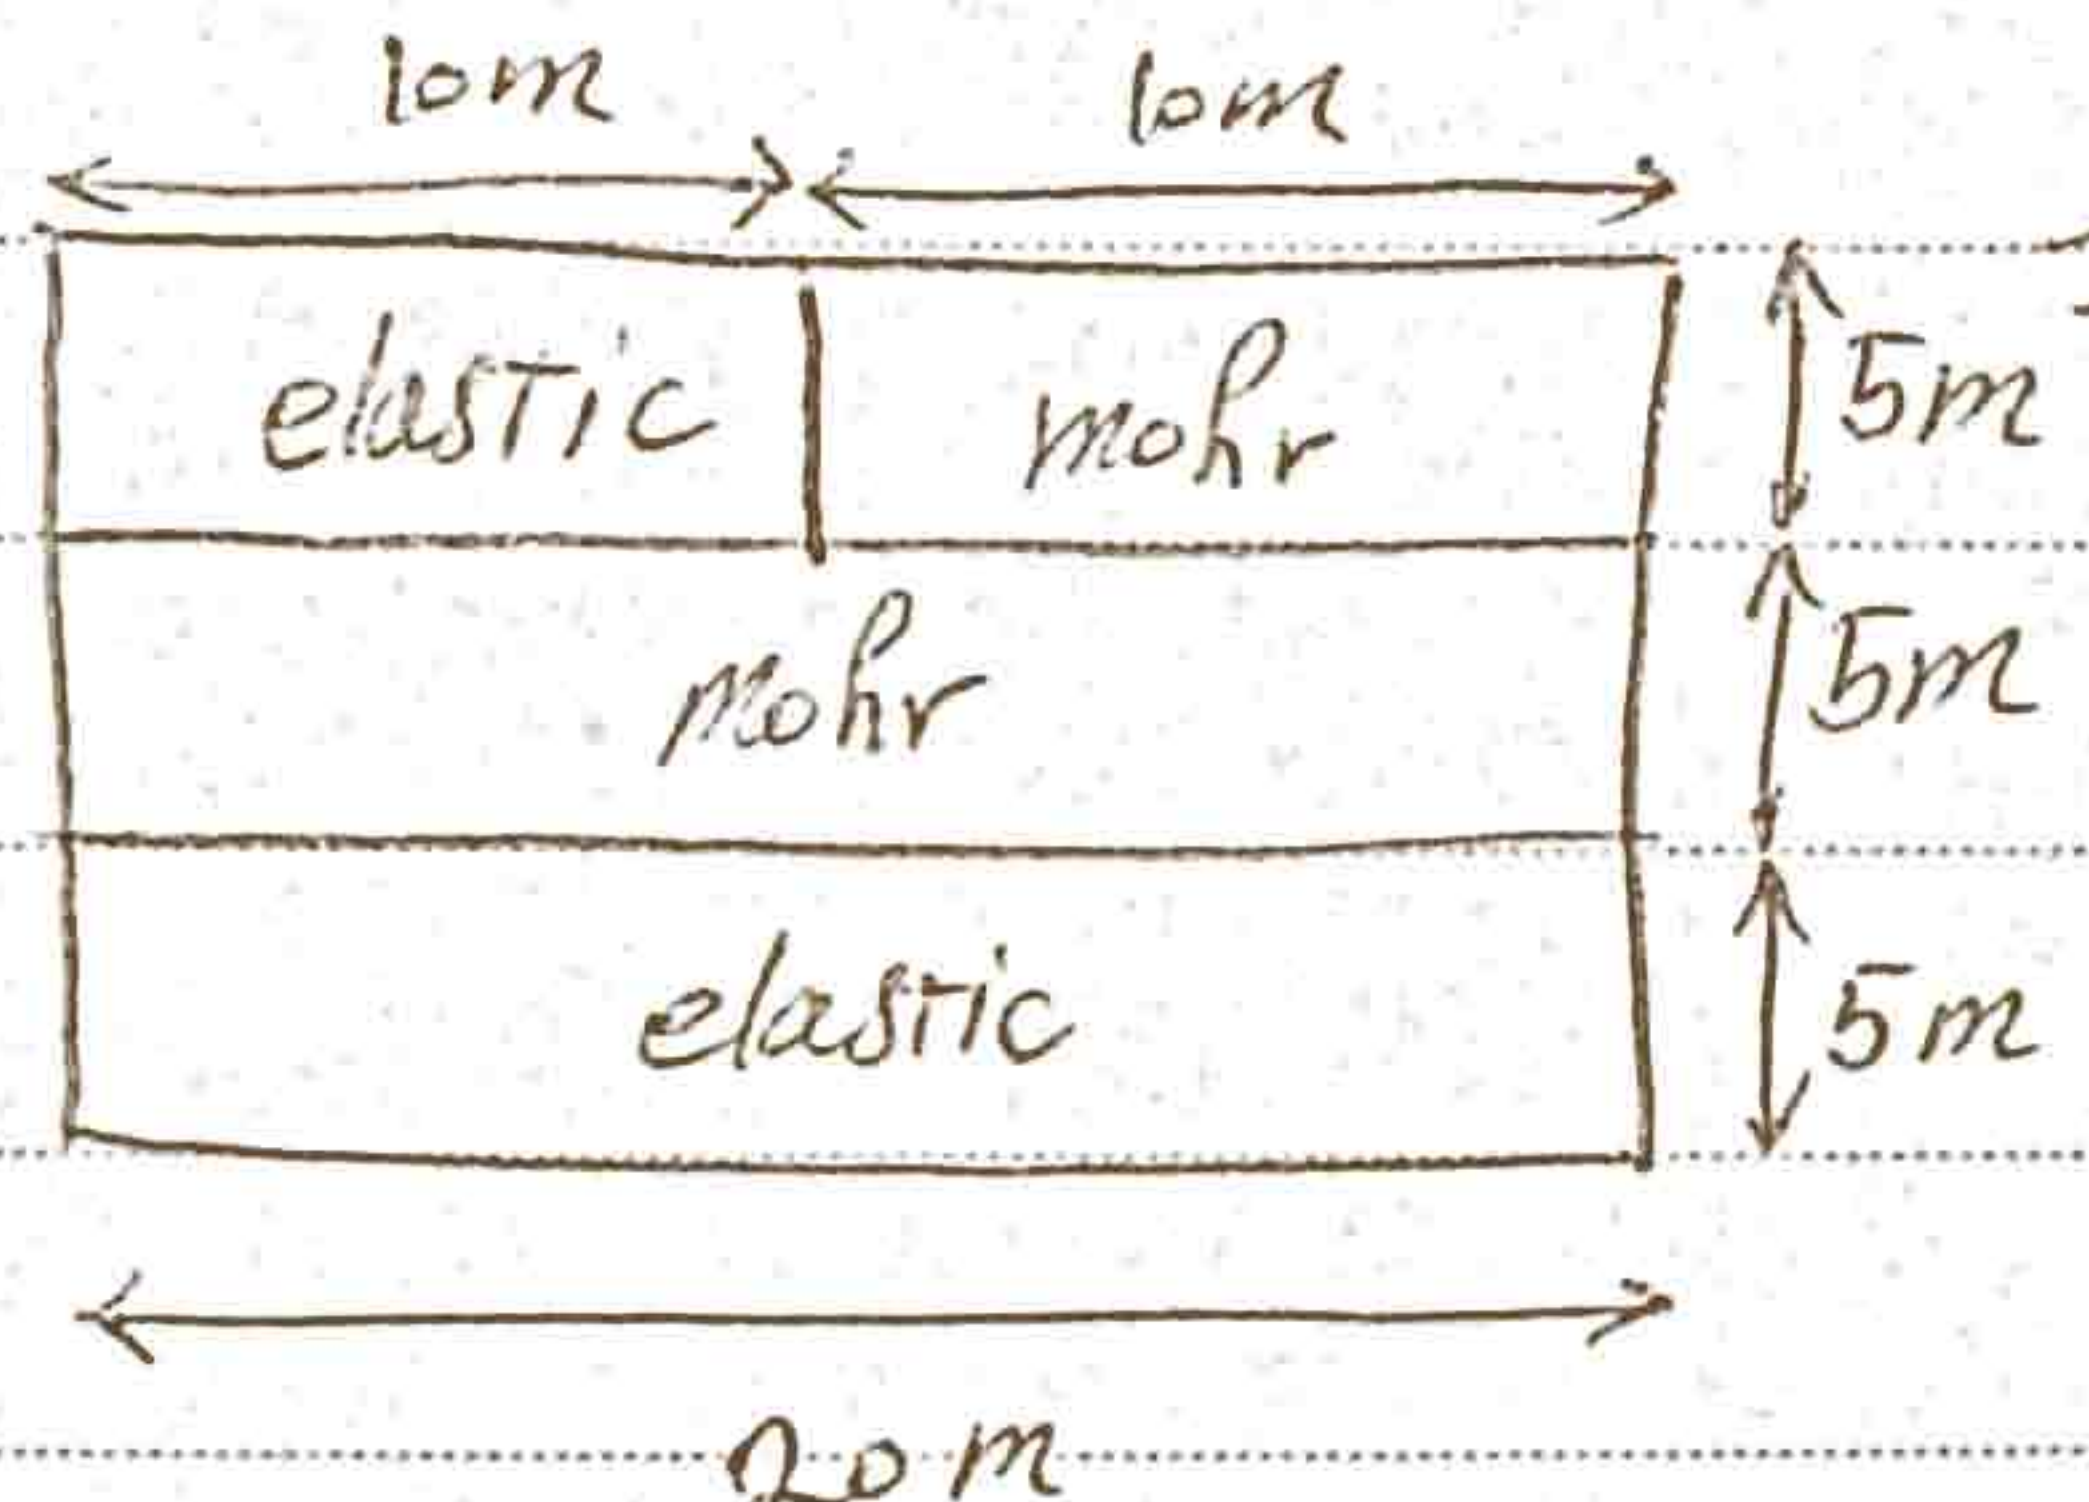 10m 10m
elastic mohr 5m
mohr 5m
elastic 5m
20m